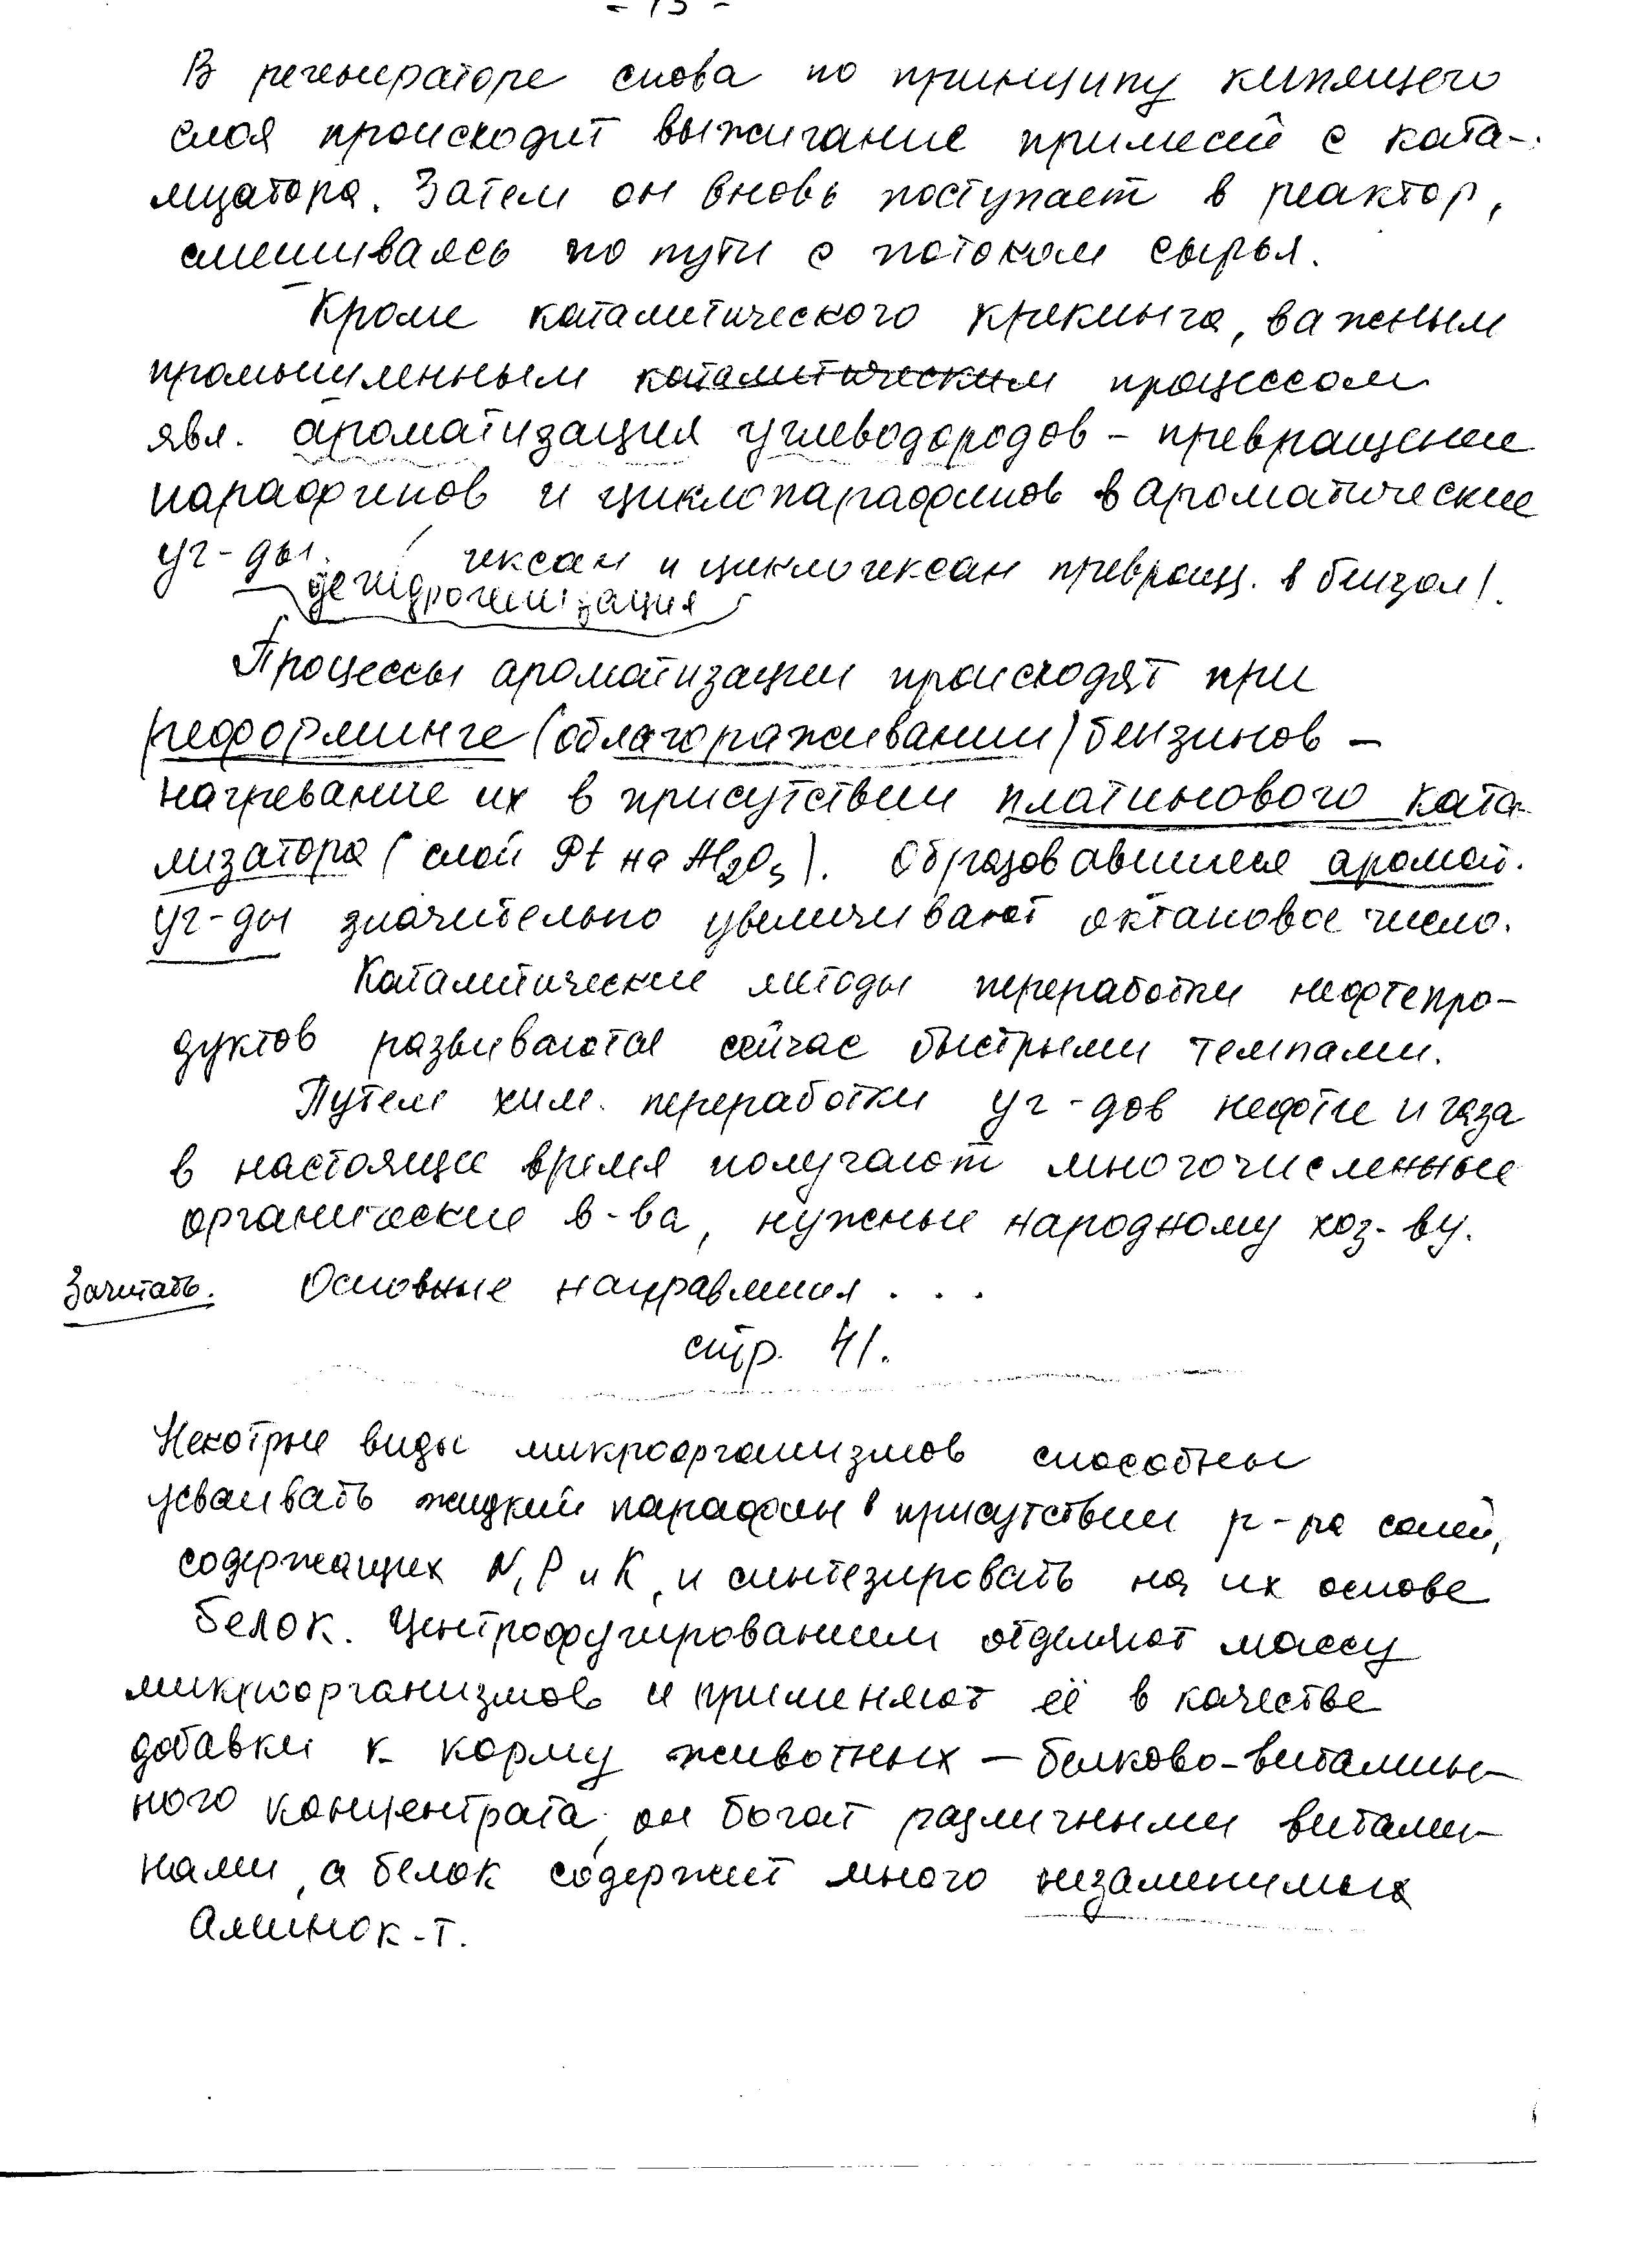 - 13 -
В регенераторе снова по принципу кипящего
слоя происходит выжигание примесей с ката-
лизатора. Затем он вновь поступает в реактор,
смешиваясь по пути с потоком сырья.
Кроме каталитического крекинга, важным
промышленным ~~каталитическим~~ процессом
явл. ароматизация углеводородов – превращение
парафинов и циклопарафинов в ароматические
уг-ды. (гексан и циклогексан превращ. в бензол).
дегидрогенизация
Процессы ароматизации происходят при
реформинге (облагораживании) бензинов –
нагревание их в присутствии платинового ката-
лизатора (слой Pt на Al2O3). Образовавшиеся аромат.
уг-ды значительно увеличивают октановое число.
Каталитические методы переработки нефтепро-
дуктов развиваются сейчас быстрыми темпами.
Путем хим. переработки уг-дов нефти и газа
в настоящее время получают многочисленные
органические в-ва, нужные народному хоз-ву.
Зачитать. Основные направления . . .
стр. 41.
Некотрые виды микроорганизмов способны
усваивать жидкий парафин в присутствии р-ра солей,
содержащих N, P и K, и синтезировать на их основе
белок. Центрофугированием отделяют массу
микроорганизмов и применяют её в качестве
добавки к корму животных – белково-витамин-
ного концентрата; он богат различными витами-
нами, а белок содержит много незаменимых
аминок-т.